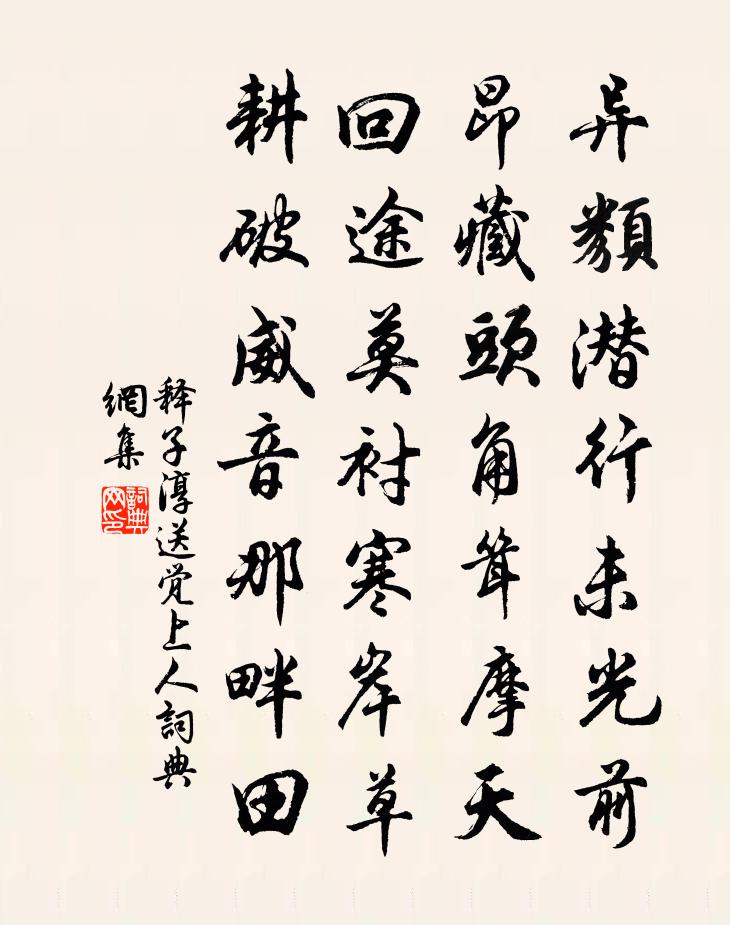 异類潜行未光前
昂藏頭角耸摩天
回途莫衬寒岸草
耕破威音那畔田
释子淳送觉上人詞典
網集
詞典
网印